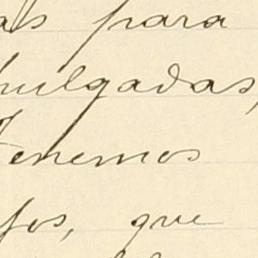 as para
pulgadas,
tenemos
fos, que